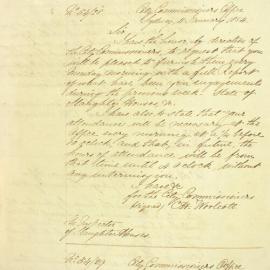 No. 54/38 City Commissioners Office
Sydney 11 January 1854.
Sir,
I have the honor by direction of
the City Commissioners, to request that you
will be pleased to furnish them every
Monday morning with a full Report
of what has been your engagements
during the previous week. State of
Slaughter Houses &c.
I have also to state that your
attendance will be necessary at this
Office every morning at a 1/4 before
10 o'clock, and that, in future, the
hours of attendance will be from
that time until 4 o'clock, without
any intermission.
I have &c
for the City Commissioners
signed C. H. Woolcott
The Inspector
of Slaughter Houses.
No. 54/39 City Commissioners Office